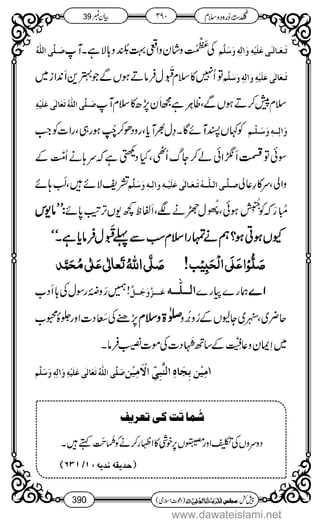 گلدستۂ دُرود و سلام
۳۹۰
بیان نمبر 39
تعالٰی علیہ واٰلہ وسلّم کی عَظَمت و شان واقعی بہت بُلند و بالا ہے۔ آپ صَلَّی اللہُ
تعالٰی علیہ واٰلہ وسلّم تو اُنہیں کا سلام قَبول فرماتے ہوں گے جو بہترین انداز میں
سلام پیش کرتے ہوں گے، ظاہر ہے مجھ اَن پڑھ کا سلام آپ صَلَّی اللہُ تَعَالٰی عَلَیْہِ
واٰلہ وسلّم کو کہاں پسند آئے گا۔ دِل بھر آیا، رو دھو کر چُپ ہو رہی، رات کو جب
سوئی تو قسمت انگڑائی لے کر جاگ اُٹھی، کیا دیکھتی ہے کہ سرہانے اُمّت کے
والی، سرکارِ عالی صلَّی اللہ تعالٰی علیہ واٰلہ وسلّم تشریف لائے ہیں، لب ہائے
مُبارَکہ کو جُنبش ہوئی، پھول جھڑنے لگے، اَلفاظ کچھ یوں ترتیب پائے: ’’مایوس
کیوں ہوتی ہو؟ ہم نے تمہارا سلام سب سے پہلے قَبول فرمایا ہے۔‘‘
صَلُّوْا عَلَی الْحَبِیْب! صَلَّی اللہُ تَعَالٰی عَلٰی مُحَمَّد
اے ہمارے پیارے اللہ عَزَّوَجَلَّ! ہمیں روضۂ رسول کی باادب
حاضری، سنہری جالیوں کے رُوبرو دُرود و صلٰوۃ وسلام پڑھنے کی سعادت اور جلوۂ محبوب
میں ایمان و عافیّت کے ساتھ شہادت کی موت نصیب فرما۔
اٰمِیْن بِجَاہِ النَّبِیِّ الْاَمِیْن صَلَّی اللہُ تَعَالٰی عَلَیْہِ وَاٰلِہٖ وَسَلَّم
شماتت کی تعریف
دوسروں کی تکلیفوں اور مصیبتوں پر خوشی کا اظہار کرنے کو شَماتَت کہتے ہیں۔
(حدیقہ ندیہ ۱/ ۶۳۱)
(دعوتِ اسلامی)
390
www.dawateislami.net